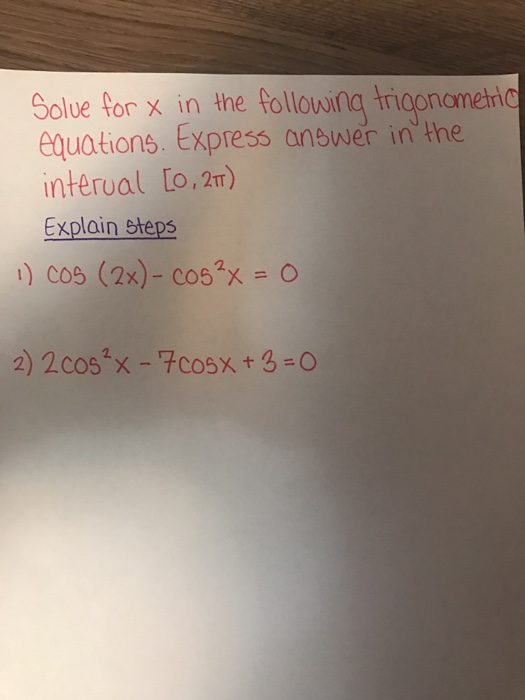 Solve for x in the following trigonometric
equations. Express answer in the
interval [0, 2π)
Explain steps
1) cos (2x) - cos²x = 0
2) 2cos²x - 7cosx + 3 = 0